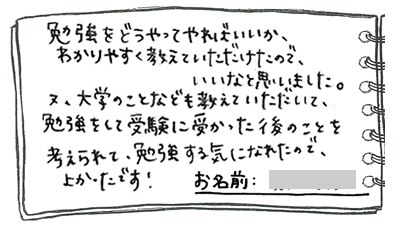 勉強をどうやってやればいいか、
わかりやすく教えていただけたので、
いいなと思いました。
又、大学のことなども教えていただいて、
勉強をして受験に受かった後のことを
考えられて、勉強する気になれたので、
よかったです!
お名前: